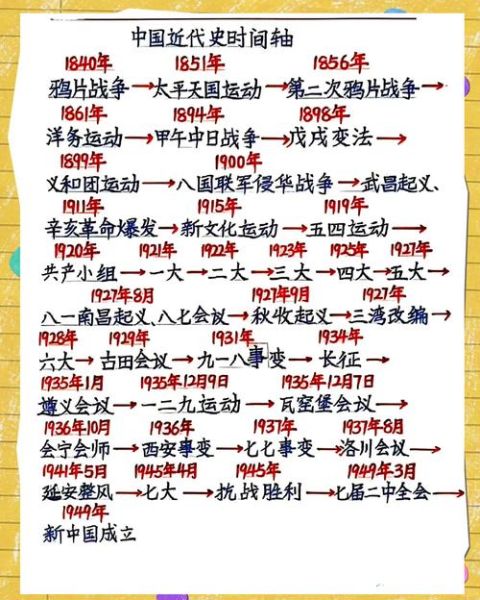 中国近代史时间轴
1840年 1851年 1856年
鸦片战争→太平天国运动→第二次鸦片战争→
1861年 1894年 1898年
洋务运动→甲午中日战争→戊戌变法→
1899年 1900年
义和团运动→八国联军侵华战争→武昌起义、
1911年 1915年 1919年
辛亥革命爆发→新文化运动→五四运动→
1920年 1921年 1922年 1923年 1925年 1927年
共产小组→一大→二大→三大→四大→五大→
1927年8月 1927年9月 1927年
八一南昌起义、八七会议→秋收起义→三湾改编→
1928年 1929年 1931年 1934年
六大→古田会议→九一八事变→长征→
1935年1月 1935年12月9日 1935年12月7日
遵义会议→一二九运动→瓦窑堡会议→
1936年10月 1936年 1937年 1937年8月
会宁会师→西安事变→七七事变→洛川会议→
1941年5月 1945年4月 1945年 1949年3月
延安整风→七大→抗战胜利→七届二中全会→
1949年
新中国成立